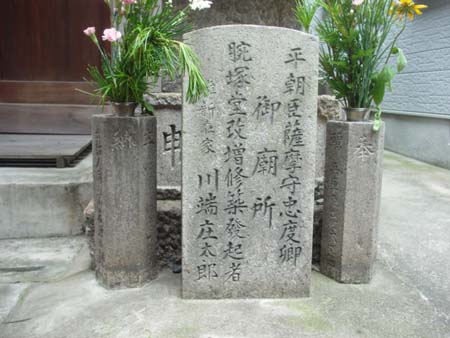 平朝臣薩摩守忠度卿
御廟所
腕塚堂改増修築發起者
川端庄太郎
奉
納
申